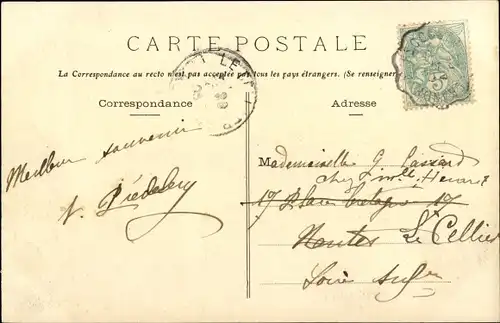 CARTE POSTALE
La Correspondance au recto n'est pas acceptée par tous les pays étrangers. (Se renseigner
Correspondance
Adresse
Meilleur souvenir
Mademoiselle G.
chez
17 Place Bretagne 17
Nantes Le Cellier
Loire Infre